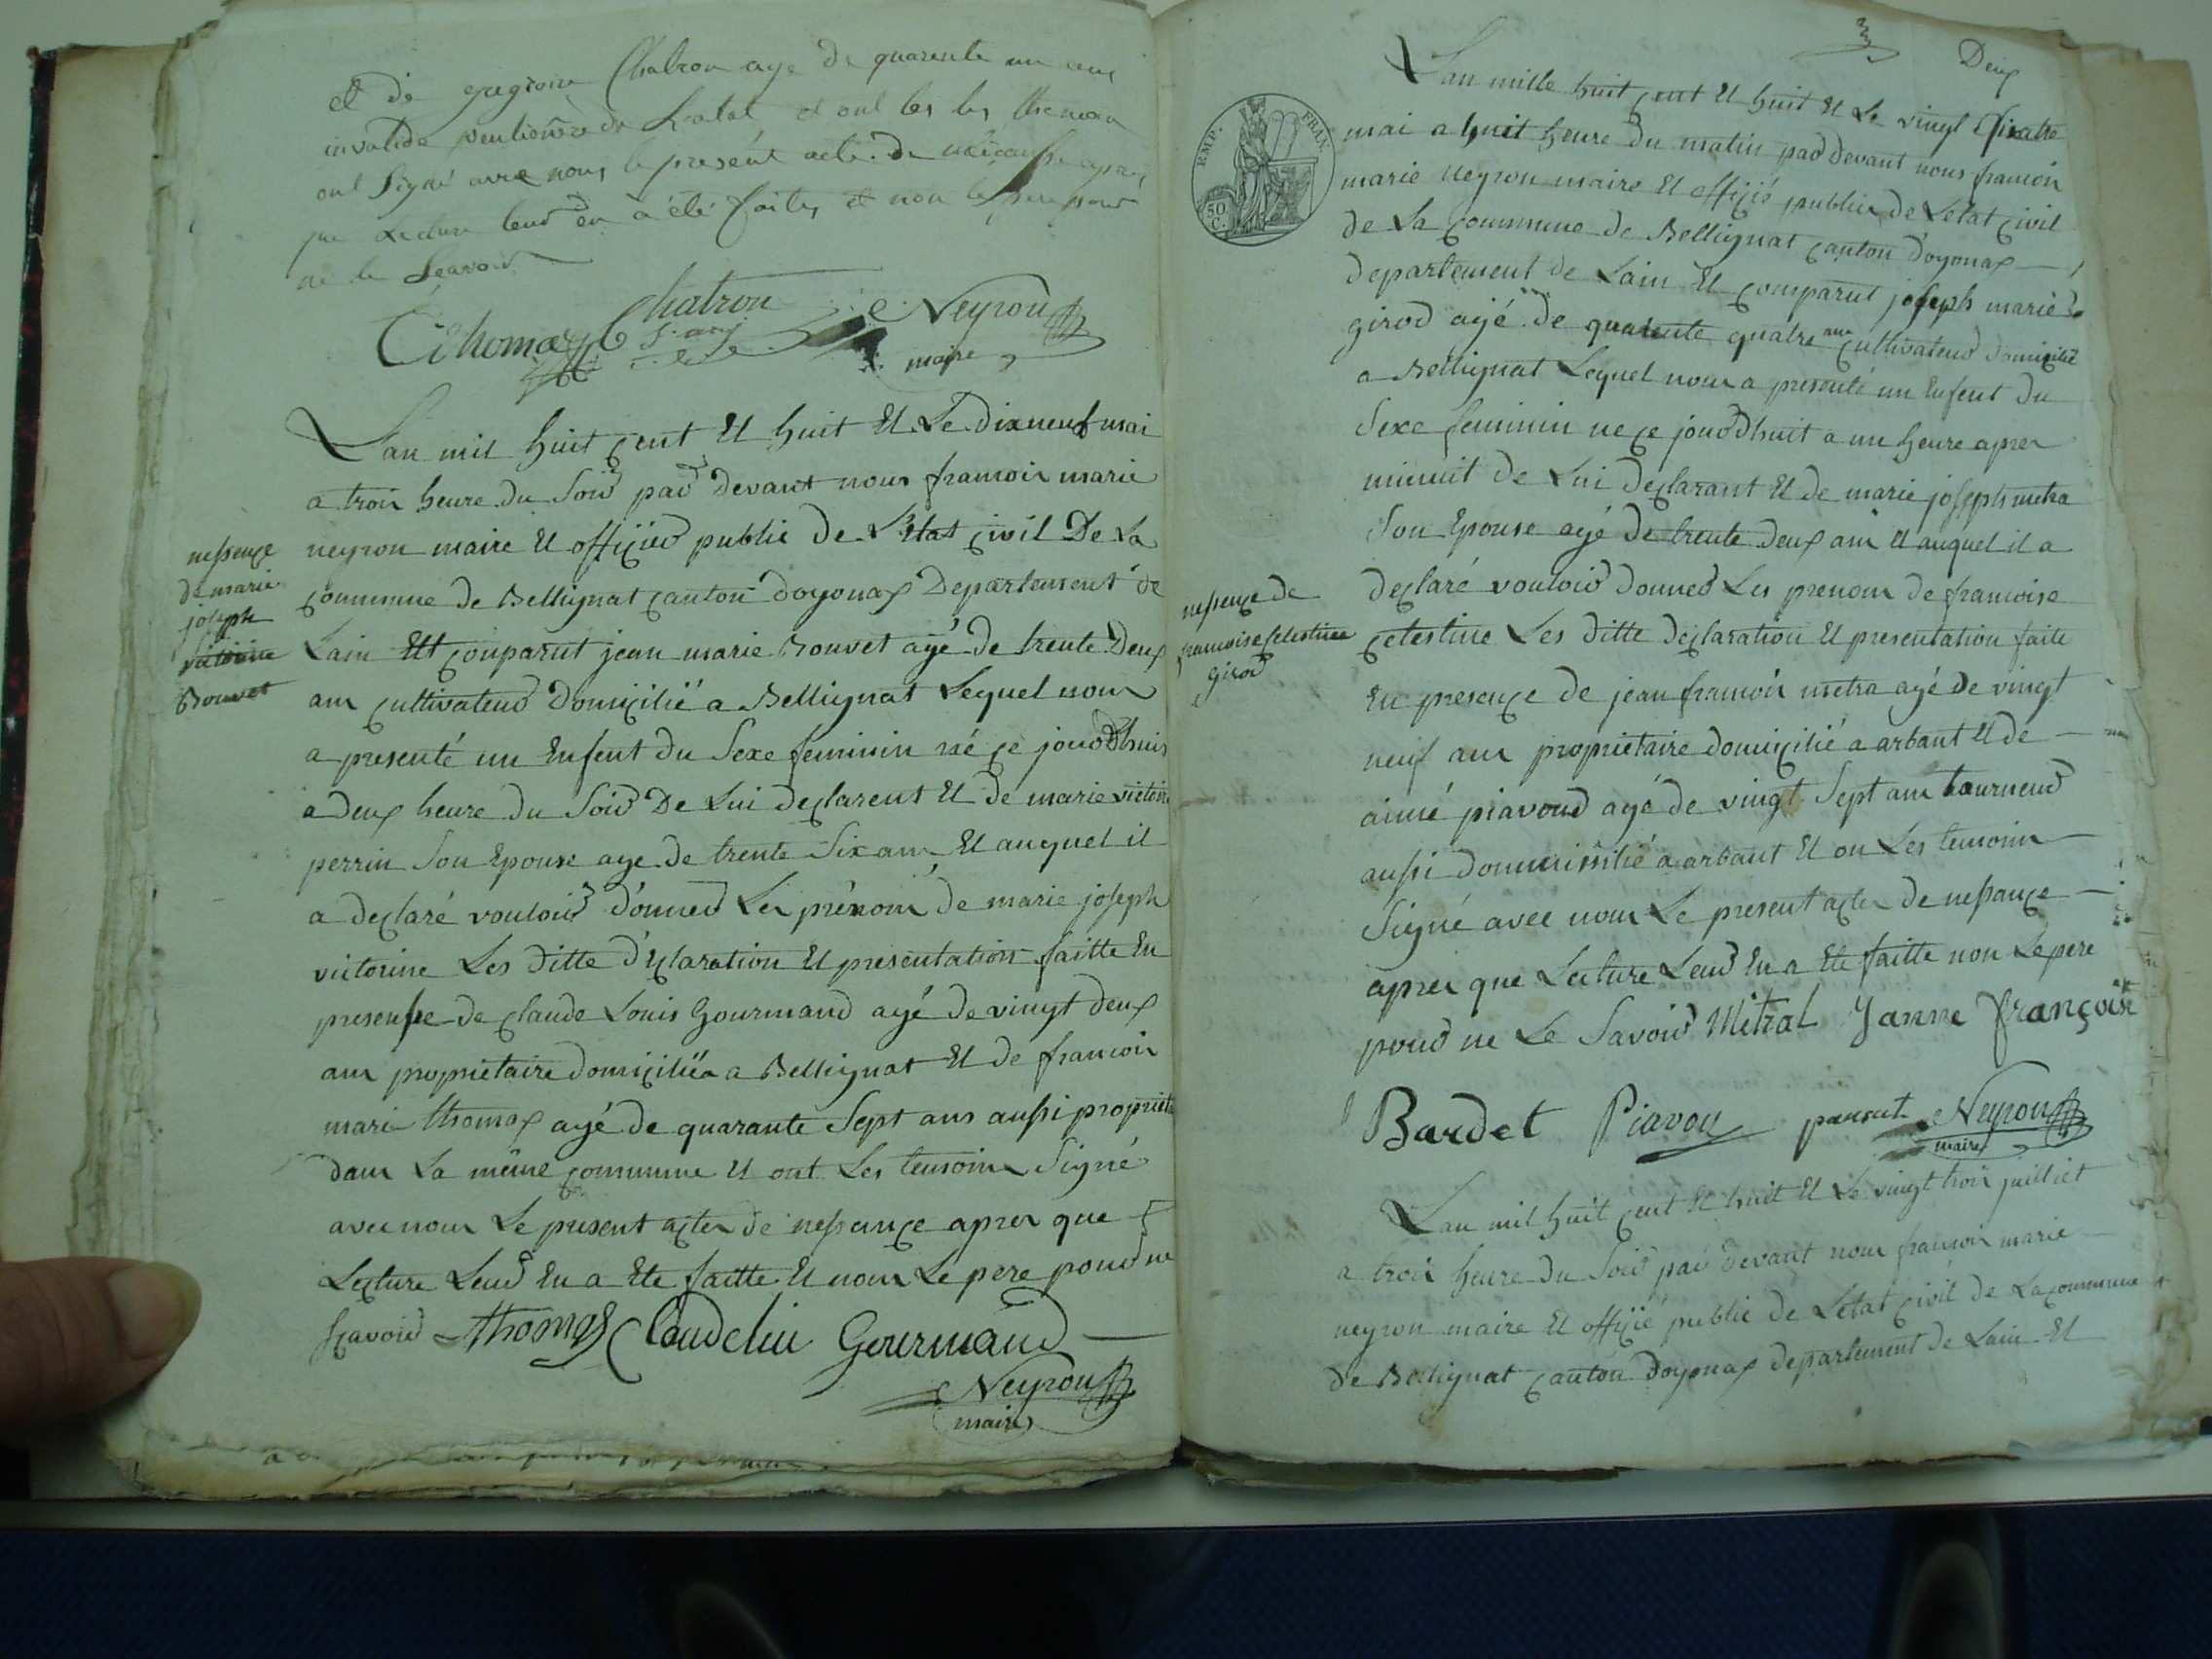 et de gregoire Chatron age de quarente un ans
invalide pentionné de Letat et ont les les themoin
ont Signé avec nous le present acte de naissance apres
que Lecture leur en a été faites et non le pere pour
ne le Scavoir
Thomas Chatron Neyron
maire
Lan mil huit cent Et huit Et Le dixneuf mai
a troi heure du Soir par devant nous francoir marie
neyron maire Et officier public de Letat civil De La
commune de Bellignat canton doyonax Departement de
Lain Est conparut jean marie Bouvet agé de trente Deux
ans cultivateur Domicilié a Bellignat Lequel nous
a presenté un Enfent du Sexe feminin né ce jourDhuis
a deux heure du Soir De Lui declarent Et de marie victoire
perrin Son Epouse age de trente Six ans Et auquel il
a declaré vouloir donner Les prénom de marie joseph
victorine Les ditte déclaration Et presentation faitte En
presensse de claude Louis Gourmand agé de vingt deux
ans proprietaire domicilié a Bellignat Et de francoir
marie thomax agé de quarante Sept ans aussi propriétai
dans La même commune Et ont Les temoins Signé
avec nous Le present acter de nessance aprer que
Lecture Leur En a Ete faitte Et nonr Le pere pour ne
Scavoir Thomas Claude Lui Gourmand
Neyron
maire
nessence
de marie
joseph
victorine
Bouvet
Deux
EMP. FRAN.
50
C.
Lan mille huit cent Et huit Et Le vingt
mai a huit heure du matin par devant nous francoir
marie neyron maire Et officié public de Letat civil
de La commune de Bellignat canton doyonax
departement de Lain Et comparut joseph marie
girod agé de quarente quatre ans cultivateur domicilié
a Bellignat Lequel nous a presenté un Enfent du
Sexe feminin ne ce jourDhuit a une heure aprer
minuit de Lui declarant Et de marie joseph metra
Son Epouse agé de trente deux ans Et auquel il a
declaré vouloir donner Les prenom de francoise
celestine Les ditte declaration Et presentation faite
En presence de jean francoir metra agé de vingt
neuf ans proprietaire domicilié a arbant Et de
aimé piavoud agé de vingt Sept ans tourneur
aussi dommissilié a arbant Et on Les temoin
Signé avec nous Le present acter de nessance
aprer que Lecture Leur En a Ete faitte non Le pere
pour ne Le Savoir Mitral Janne françois
Bardet Piavou Neyron
maire
nessence de
francoise celestine
girod
Lan mil huit cent Et huit Et Le vingt troi juilliet
a troir heure du Soir par devant nous francoir marie
neyron maire Et officié public de Letat civil de La commune
de Bellignat canton doyonax departement de Lain Et